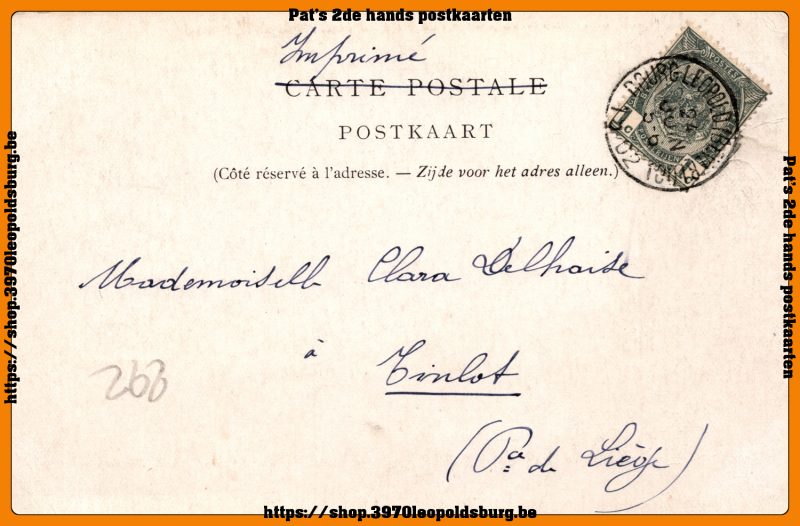 Pat's 2de hands postkaarten
Imprimé
CARTE POSTALE
POSTKAART
(Côté réservé à l'adresse. — Zijde voor het adres alleen.)
BOURG-LEOPOLD (CAMP)
1902
Mademoiselle Clara Delhaise
à Tinlot
(Pce de Liége)
268
https://shop.3970leopoldsburg.be
Pat's 2de hands postkaarten
https://shop.3970leopoldsburg.be